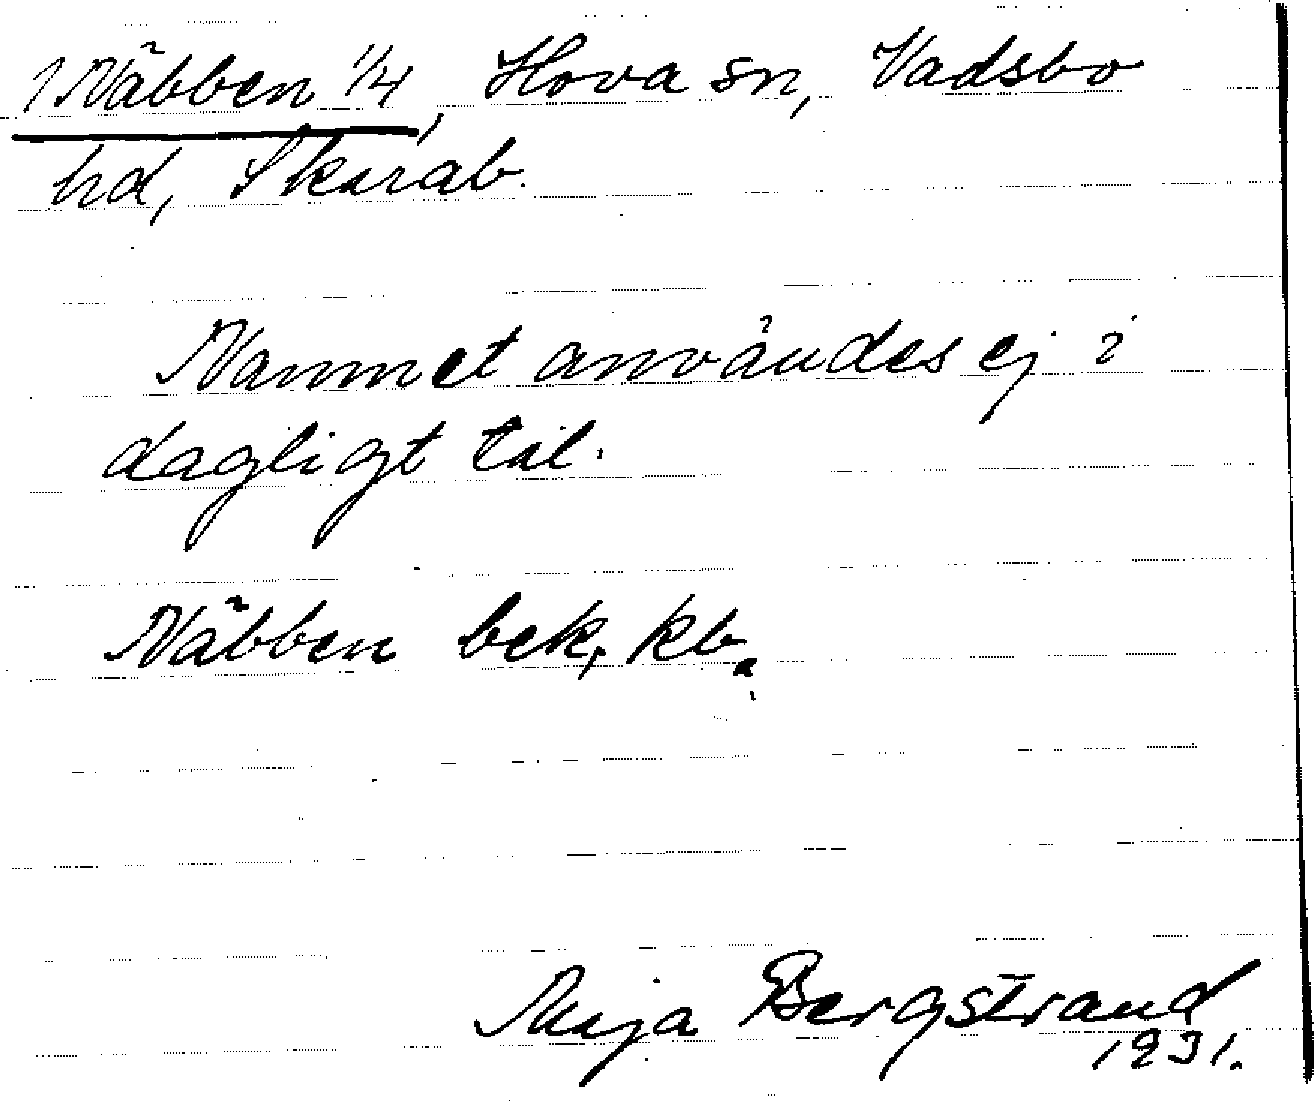 1 Näbben 1/4, Hova sn, Vadsbo
hd, Skarab.
Namnet användes ej i
dagligt tal.
Näbben bek, kb.
Maja Bergstrand
1931.